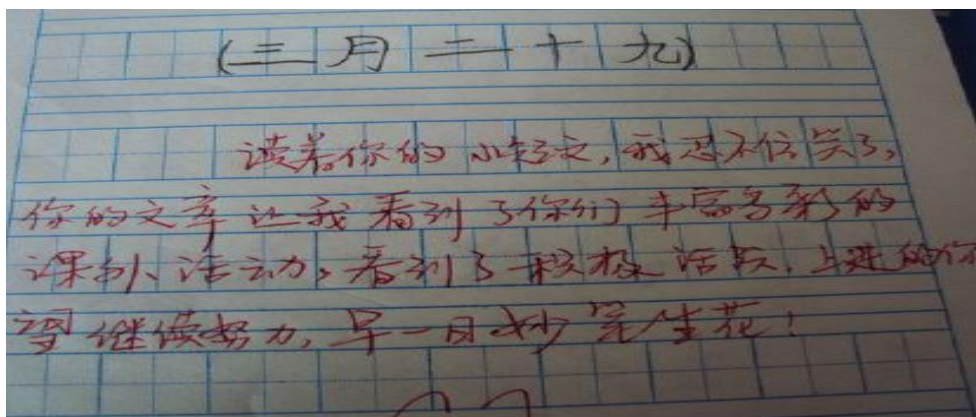 (三月二十九)
读着你的小短文,我忍不住笑了,
你的文章让我看到了你们丰富多彩的
课外活动,看到了积极活跃、上进的你
望继续努力,早一日妙笔生花!